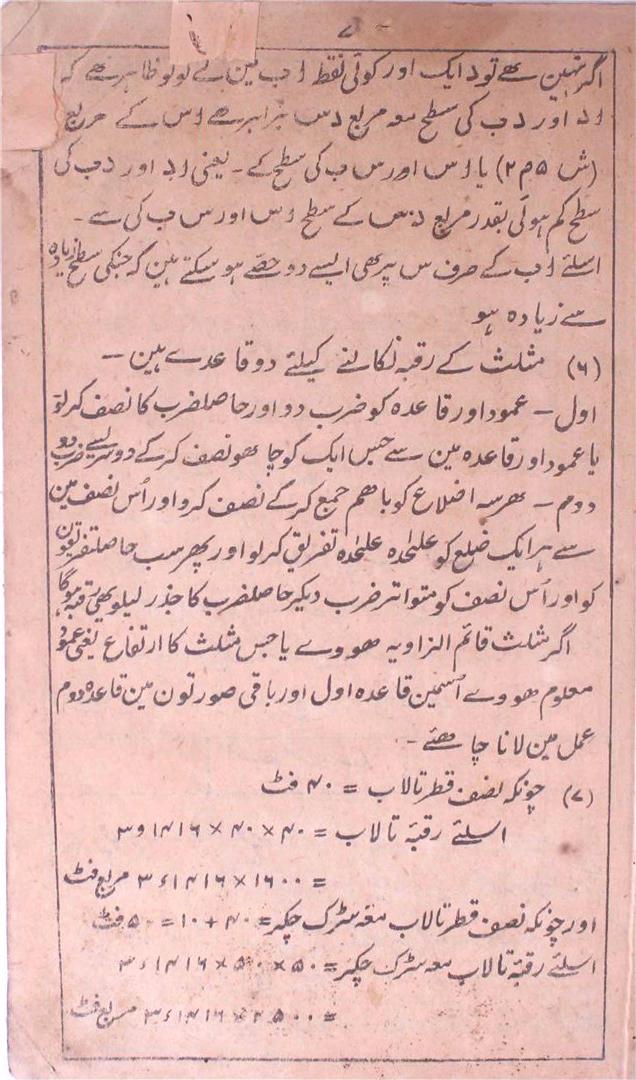 ۷
اگر نہین ہے تو د ایک اور کوئی نقط ا ب مین لے لو تو ظاہر ہے کہ
ا د اور د ب کی سطح معہ مربع د س برابر ہے ا س کے مربع
(ش ۵ م ۲) یا ا س اور س ب کی سطح کے - یعنی ا د اور د ب کی
سطح کم ہوئی بقدر مربع د س کے سطح ا س اور س ب کی سے -
اسلئے ا ب کے صرف س پر بھی ایسے دو حصے ہو سکتے ہین کہ جنکی سطح زیادہ
سے زیادہ ہو
(۶) مثلث کے رقبہ نکالنے کیلئے دو قاعدے ہین -
اول - عمود اور قاعدہ کو ضرب دو اور حاصلضرب کا نصف کرلو
یا عمود اور قاعدہ مین سے جس ایک کو چاہو نصف کر کے دوسرے سے ضرب دو
دوم - ہرسہ اضلاع کو باہم جمع کر کے نصف کرو اور اُس نصف مین
سے ہر ایک ضلع کو علیحدہ علیحدہ تفریق کرلو اور پھر سب حاصلتفریقون
کو اور اُس نصف کو متواتر ضرب دیکر حاصلضرب کا جذر لیلو یہی رقبہ ہوگا
اگر مثلث قائم الزاویہ ہووے یا جس مثلث کا ارتفاع یعنی عمود
معلوم ہووے اُسمین قاعدہ اول اور باقی صورتون مین قاعدہ دوم
عمل مین لانا چاہئے -
(۷) چونکہ نصف قطر تالاب = ۴۰ فٹ
اسلئے رقبۂ تالاب = ۴۰ × ۴۰ × ۱۴۱۶ء۳
= ۱۶۰۰ × ۱۴۱۶ء۳ مربع فٹ
اور چونکہ نصف قطر تالاب معہ سڑک چکر = ۴۰ + ۱۰ = ۵۰ فٹ
اسلئے رقبۂ تالاب معہ سڑک چکر = ۵۰ × ۵۰ × ۱۴۱۶ء۳
= ۲۵۰۰ × ۱۴۱۶ء۳ مربع فٹ